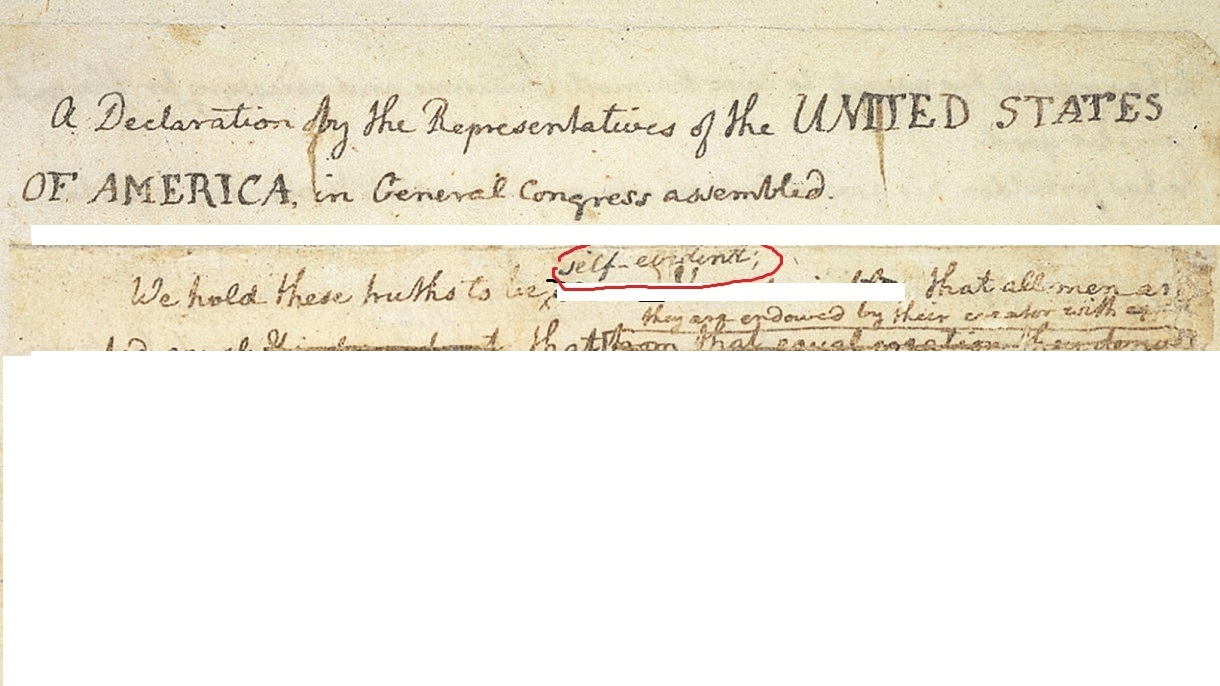 A Declaration by the Representatives of the UNITED STATES
OF AMERICA, in General Congress assembled.
self-evident;
We hold these truths to be that all men ar
they are endowed by their creator with
that from that equal creation they